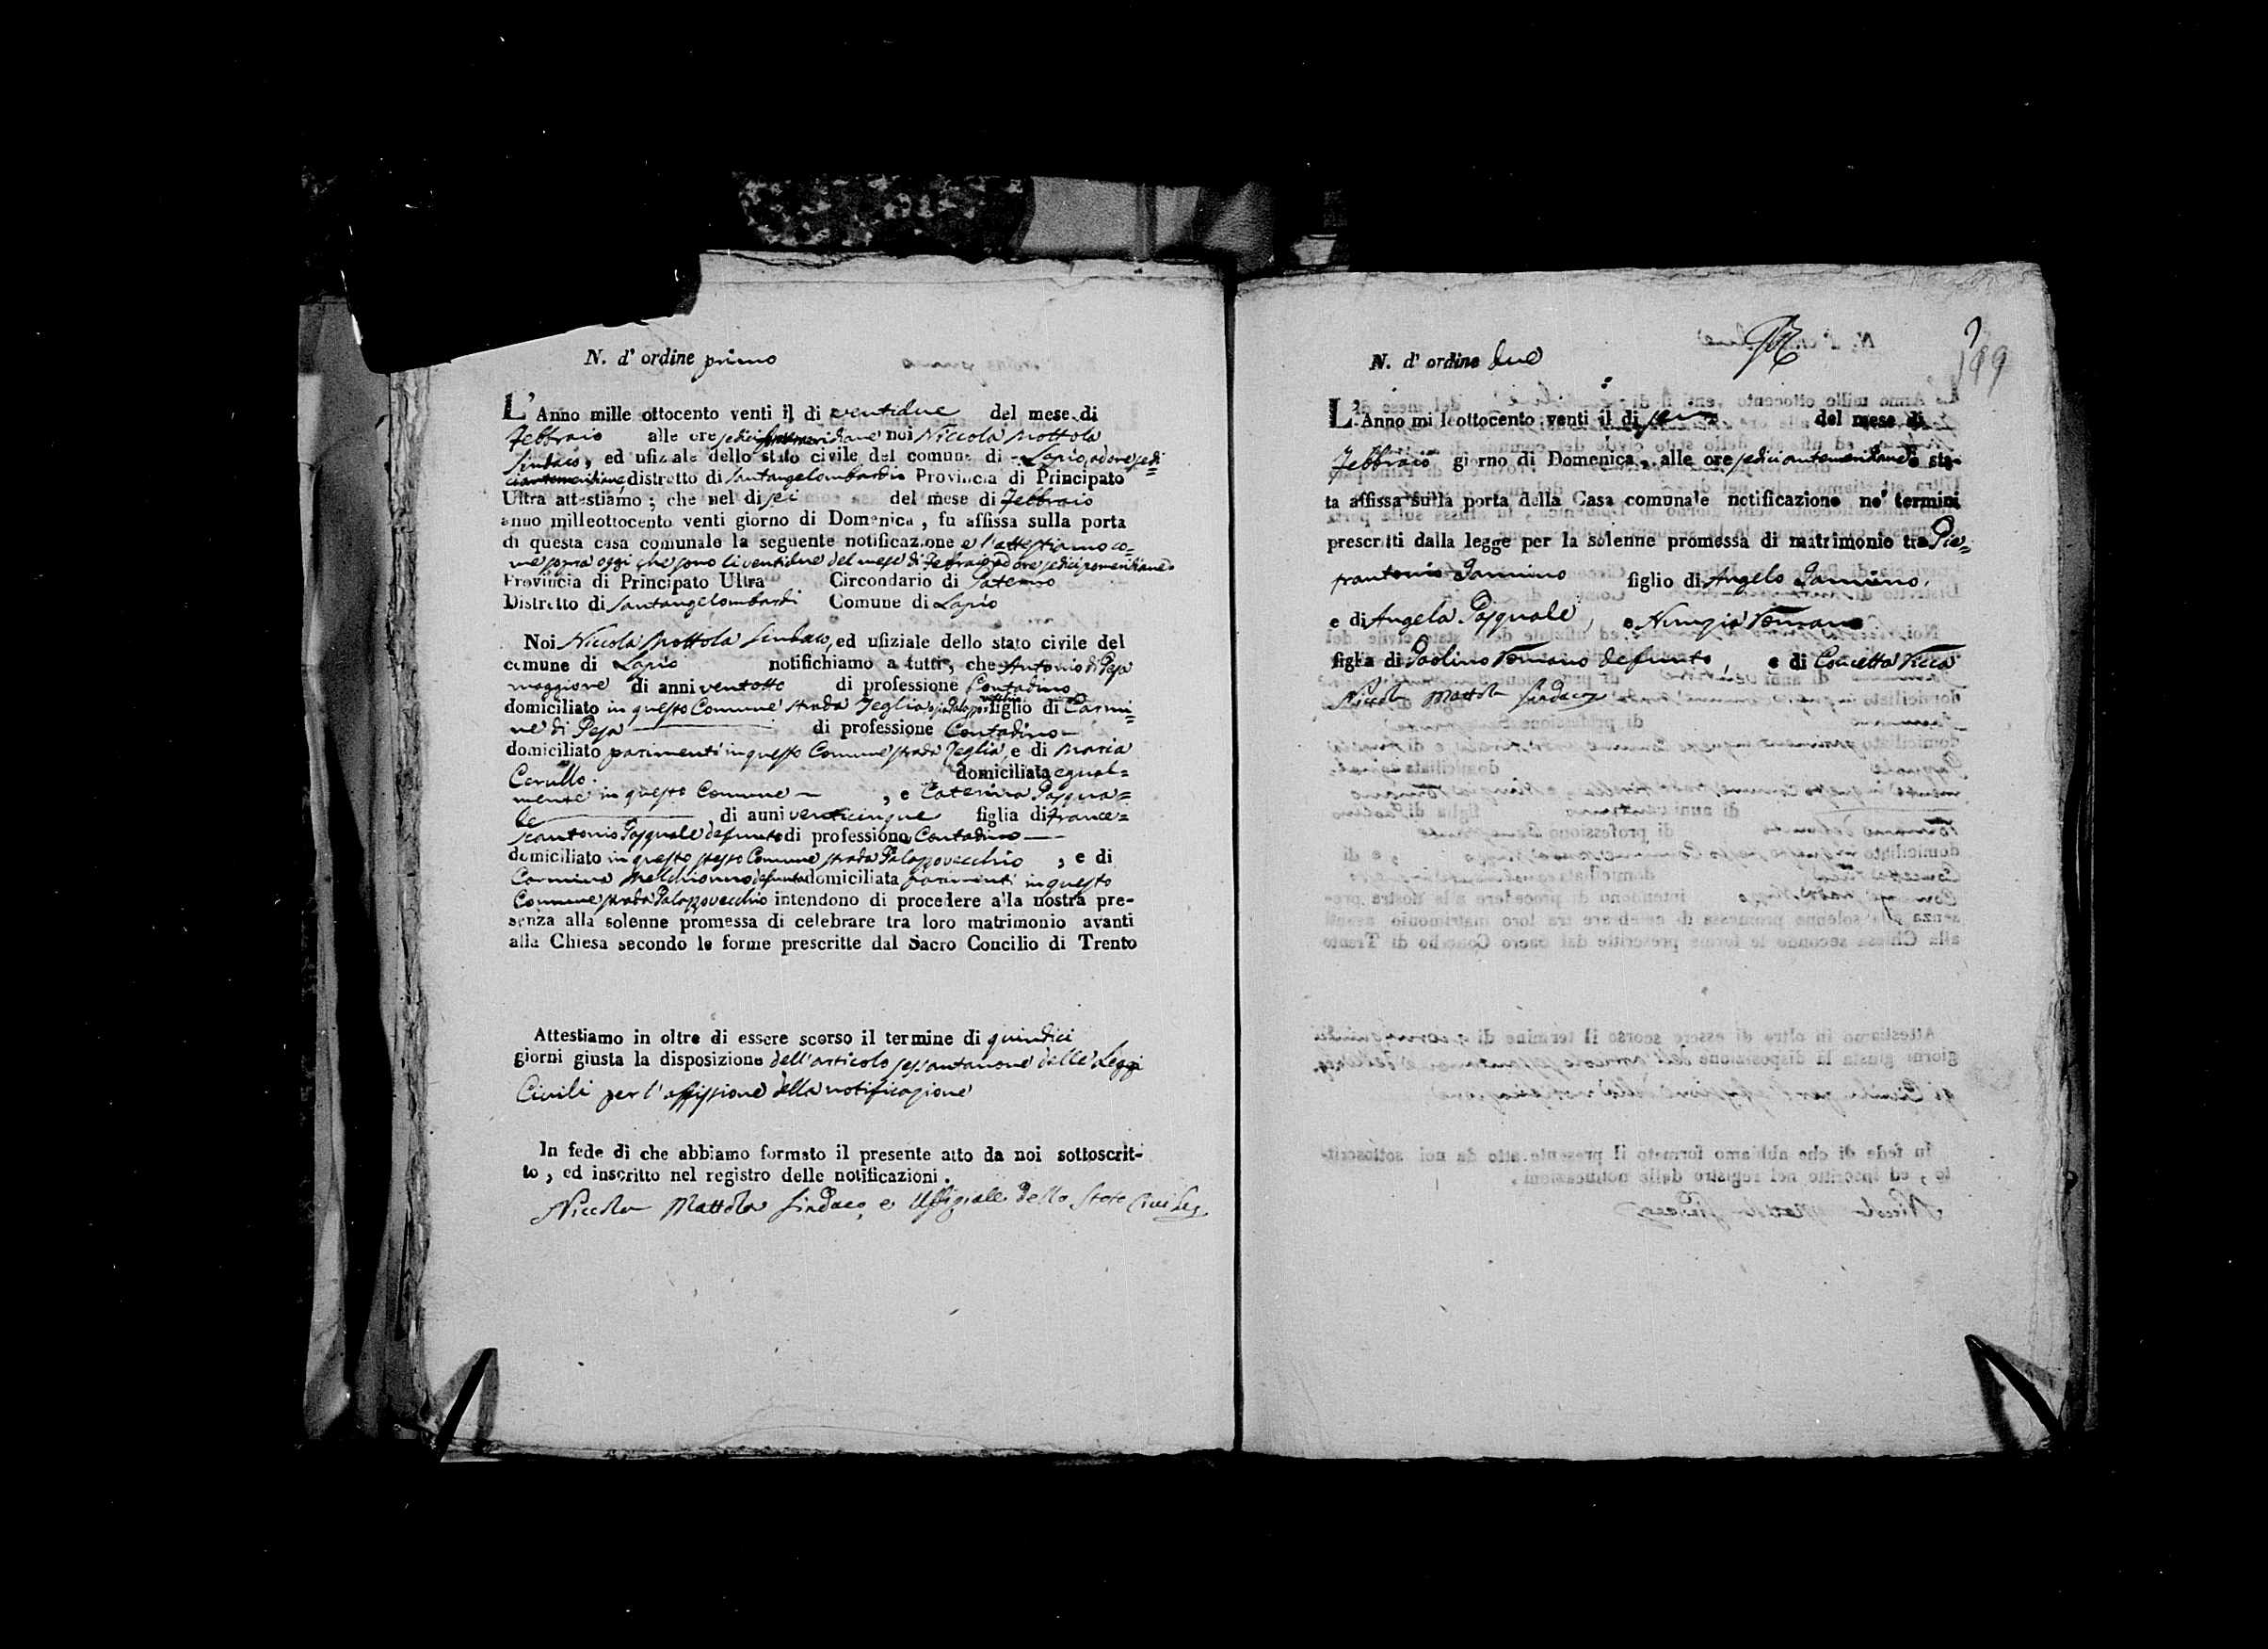 N. d' ordine primo
L' Anno mille ottocento venti il di ventidue del mese di
Febbraio alle ore sedici noi Niccola Mottola
Sindaco, ed ufiziale dello stato civile del comune di Lapio, ad ore sedi=
distretto di Santangelombardi Provincia di Principato
Ultra attestiamo ; che nel di sei del mese di Febbraio
anno milleottocento venti giorno di Domenica , fu affissa sulla porta
di questa casa comunale la seguente notificazione e l'attestiamo co=
me sopra oggi che sono li ventidue del mese di Febraio ad ore sedici pomeridiane
Provincia di Principato Ultra Circondario di Paterno
Distretto di Santangelombardi Comune di Lapio
Noi Niccola Mottola Sindaco, ed ufiziale dello stato civile del
comune di Lapio notifichiamo a tutti, che Antonio di Pesa
maggiore di anni ventotto di professione Contadino
domiciliato in questo Comune strada Teglia figlio di Carmi=
ne di Pesa di professione Contadino
domiciliato parimenti in questo Comune strada Teglia, e di Maria
Cerullo. domiciliata egual=
mente in questo Comune , e Caterina Pasqua=
le di anni venticinque figlia di France=
scantonio Pasquale defunto di professione Contadino
domiciliato in questo stesso Comune strada Palazzovecchio , e di
Carmina Melchionno defunta domiciliata parimenti in questo
Comune strada Palazzovecchio intendono di procedere alla nostra pre-
senza alla solenne promessa di celebrare tra loro matrimonio avanti
alla Chiesa secondo le forme prescritte dal Sacro Concilio di Trento
Attestiamo in oltre di essere scorso il termine di quindici
giorni giusta la disposizione dell'articolo sessantanove delle Leggi
Civili per l'affissione della notificazione
In fede di che abbiamo formato il presente atto da noi sottoscrit-
to , ed inscritto nel registro delle notificazioni .
Niccola Mottola Sindaco, e Uffiziale dello Stato Civile
N. d' ordine due
199
L' Anno mi leottocento venti il di del mese di
Febbraio giorno di Domenica , alle ore sedici antemeridiane è sta-
ta affissa sulla porta della Casa comunale notificazione ne' termini
prescritti dalla legge per la solenne promessa di matrimonio tra Pie=
trantonio Iannino figlio di Angelo Iannino,
e di Angela Pasquale, e Nunzia Romano
figlia di Paolino Romano defunto, e di Concetta Ricca
Niccola Mottola Sindaco